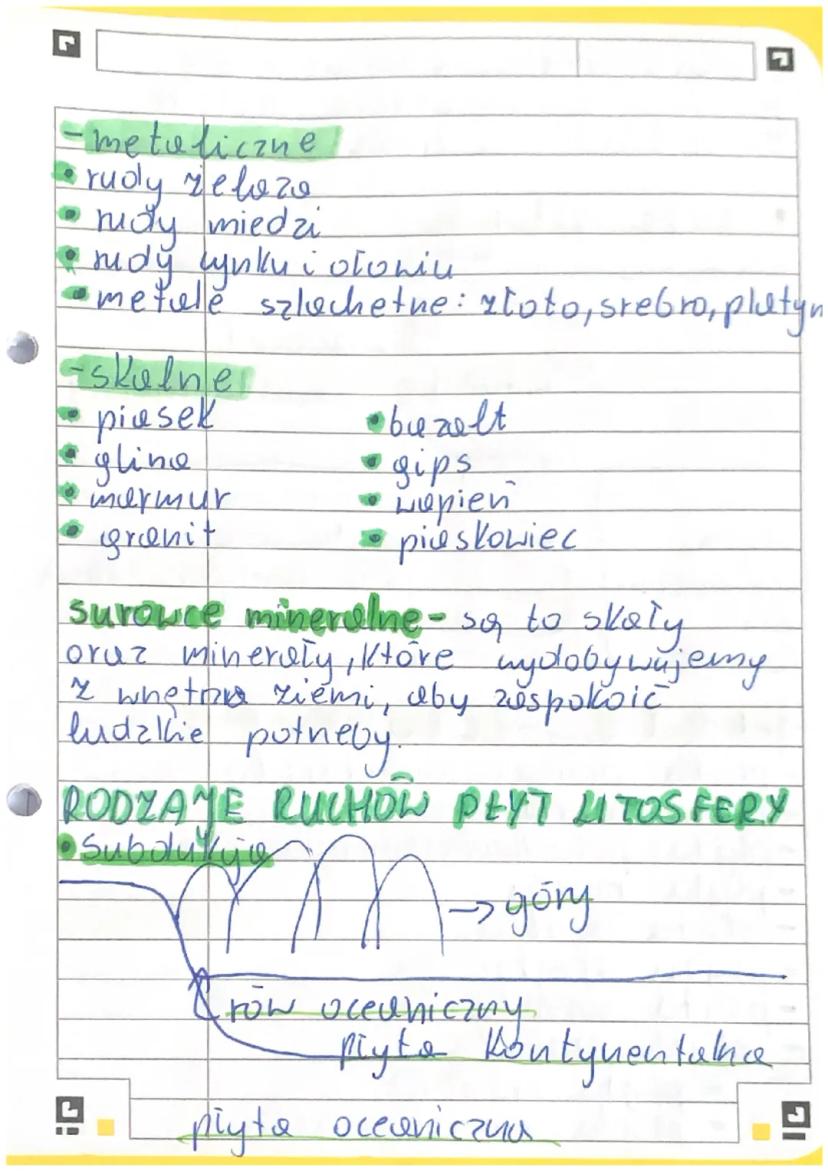 - metaliczne
• rudy żelaza
• rudy miedzi
• rudy cynku i ołowiu
• metale szlachetne: złoto, srebro, platyn
- skalne
• piasek
• glina
• marmur
• granit
• bazalt
• gips
• wapień
• piaskowiec
surowce mineralne - są to skały
oraz minerały, które wydobywujemy
z wnętrza ziemi, aby zaspokoić
ludzkie potrzeby.
RODZAJE RUCHÓW PŁYT LITOSFERY
• Subdukcja
→ góry
rów oceaniczny
płyta kontynentalna
płyta oceaniczna